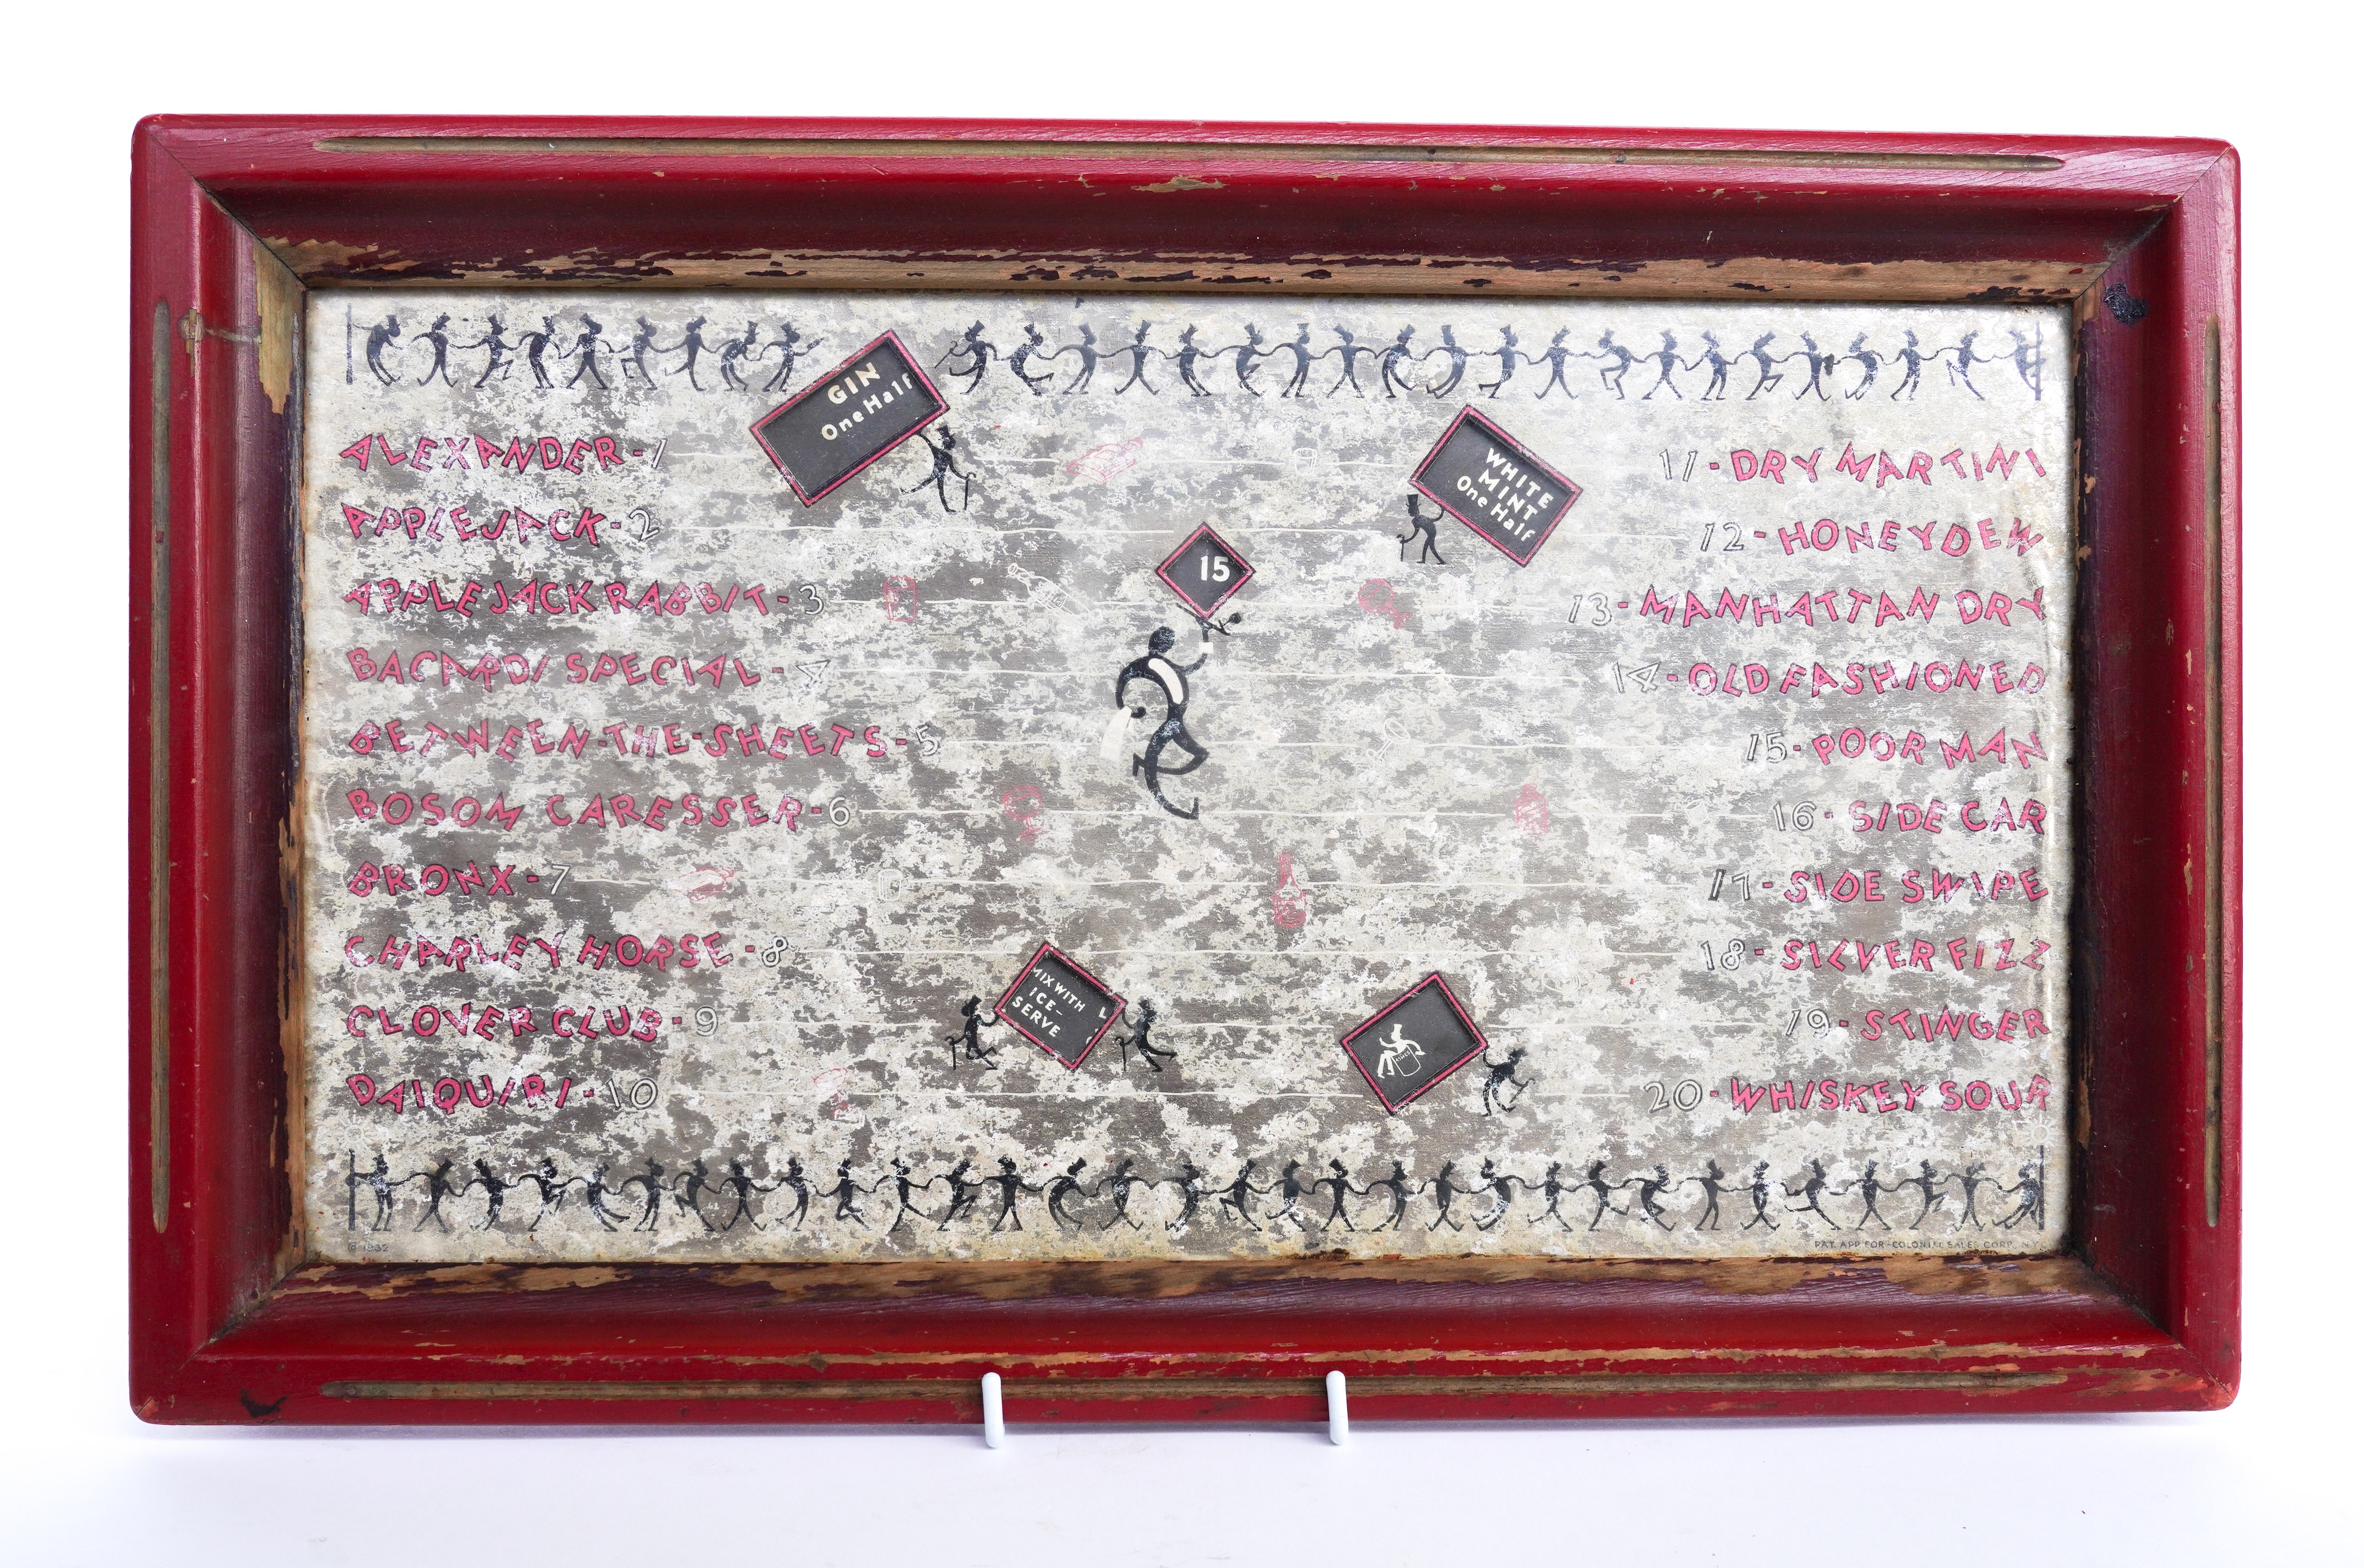 GIN
One Half
ALEXANDER-1
APPLEJACK-2
APPLEJACK RABBIT-3
BACARDI SPECIAL-4
BETWEEN-THE-SHEETS-5
BOSOM CARESSER-6
BRONX-7
CHARLEY HORSE-8
CLOVER CLUB-9
DAIQUIRI-10
WHITE
MINT
One Half
15
MIX WITH
ICE-
SERVE
11-DRY MARTINI
12-HONEYDEW
13-MANHATTAN DRY
14-OLD FASHIONED
15-POOR MAN
16-SIDE CAR
17-SIDE SWIPE
18-SILVER FIZZ
19-STINGER
20-WHISKEY SOUR
© 1932
PAT. APP. FOR-COLONIAL SALES CORP. N.Y.